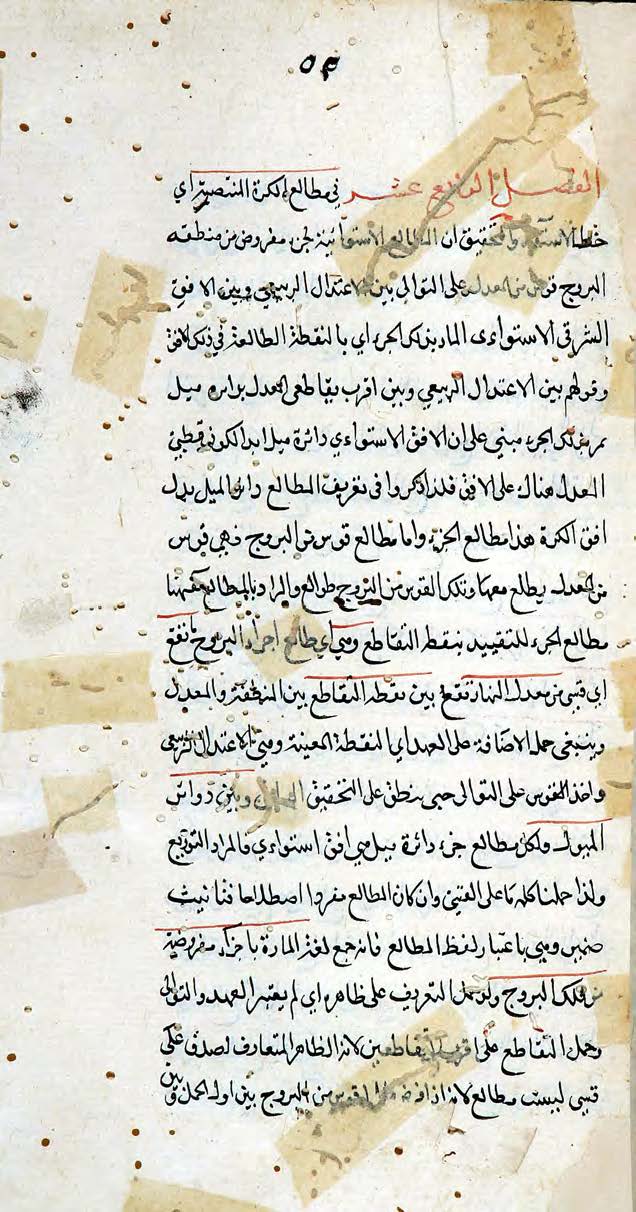 ٥٣
الفصل الرابع عشر في مطالع الكرة المنتصبة اي
خط الاستواء والتحقيق ان المطالع الاستوائية لجزء مفروض من منطقه
البروج قوس من المعدل على التوالى بين الاعتدال الربيعي وبين الافق
الشرقى الاستواءى المار بذلك الجزء اي بالنقطة الطالعة في ذلك الافق
وقولهم بين الاعتدال الربيعي وبين اقرب تقاطعى المعدل بدائره ميل
تمر بذلك الجزء مبني على ان الافق الاستواءي دائرة ميل ابدا لكون قطبي
المعدل هناك على الافق فلذا ذكروا في تعريف المطالع دائرة الميل بدل
افق الكرة هذا مطالع الجزء واما مطالع قوس من البروج فهي قوس
من المعدل يطلع معها وتلك القوس من البروج طوالع والمراد بالمطالع ههنا
مطالع الجزء للتقييد بنقطة التقاطع وهي اي مطالع اجزاء البروج تقع
اي قسي من معدل النهار تقع بين نقطة التقاطع بين المنطقة والمعدل
وينبغى حمل الاضافة على العهد اي النقطة المعينة وهي الاعتدال الربيعى
واخذ القوس على التوالى حتى ينطق على التحقيق وبين دوائر
الميول ولكل مطالع جزء دائرة ميل هي افق استواءي فالمراد التوزيع
ولذا حملنا كلمة ما على القسي وان كان المطالع مفردا اصطلاحا فتانيث
ضمير وهي باعتبار لفظ المطالع فانه جمع لغة المارة باجزاء مفروضة
من فلك البروج ولو حمل التعريف على ظاهره اي لم يعتبر العهد والتوالى
وحمل التقاطع على اقرب التقاطعين لانه الظاهر المتعارف لصدق على
قسي ليست مطالع لانه اذا قوس من البروج بين اول الحمل وبين